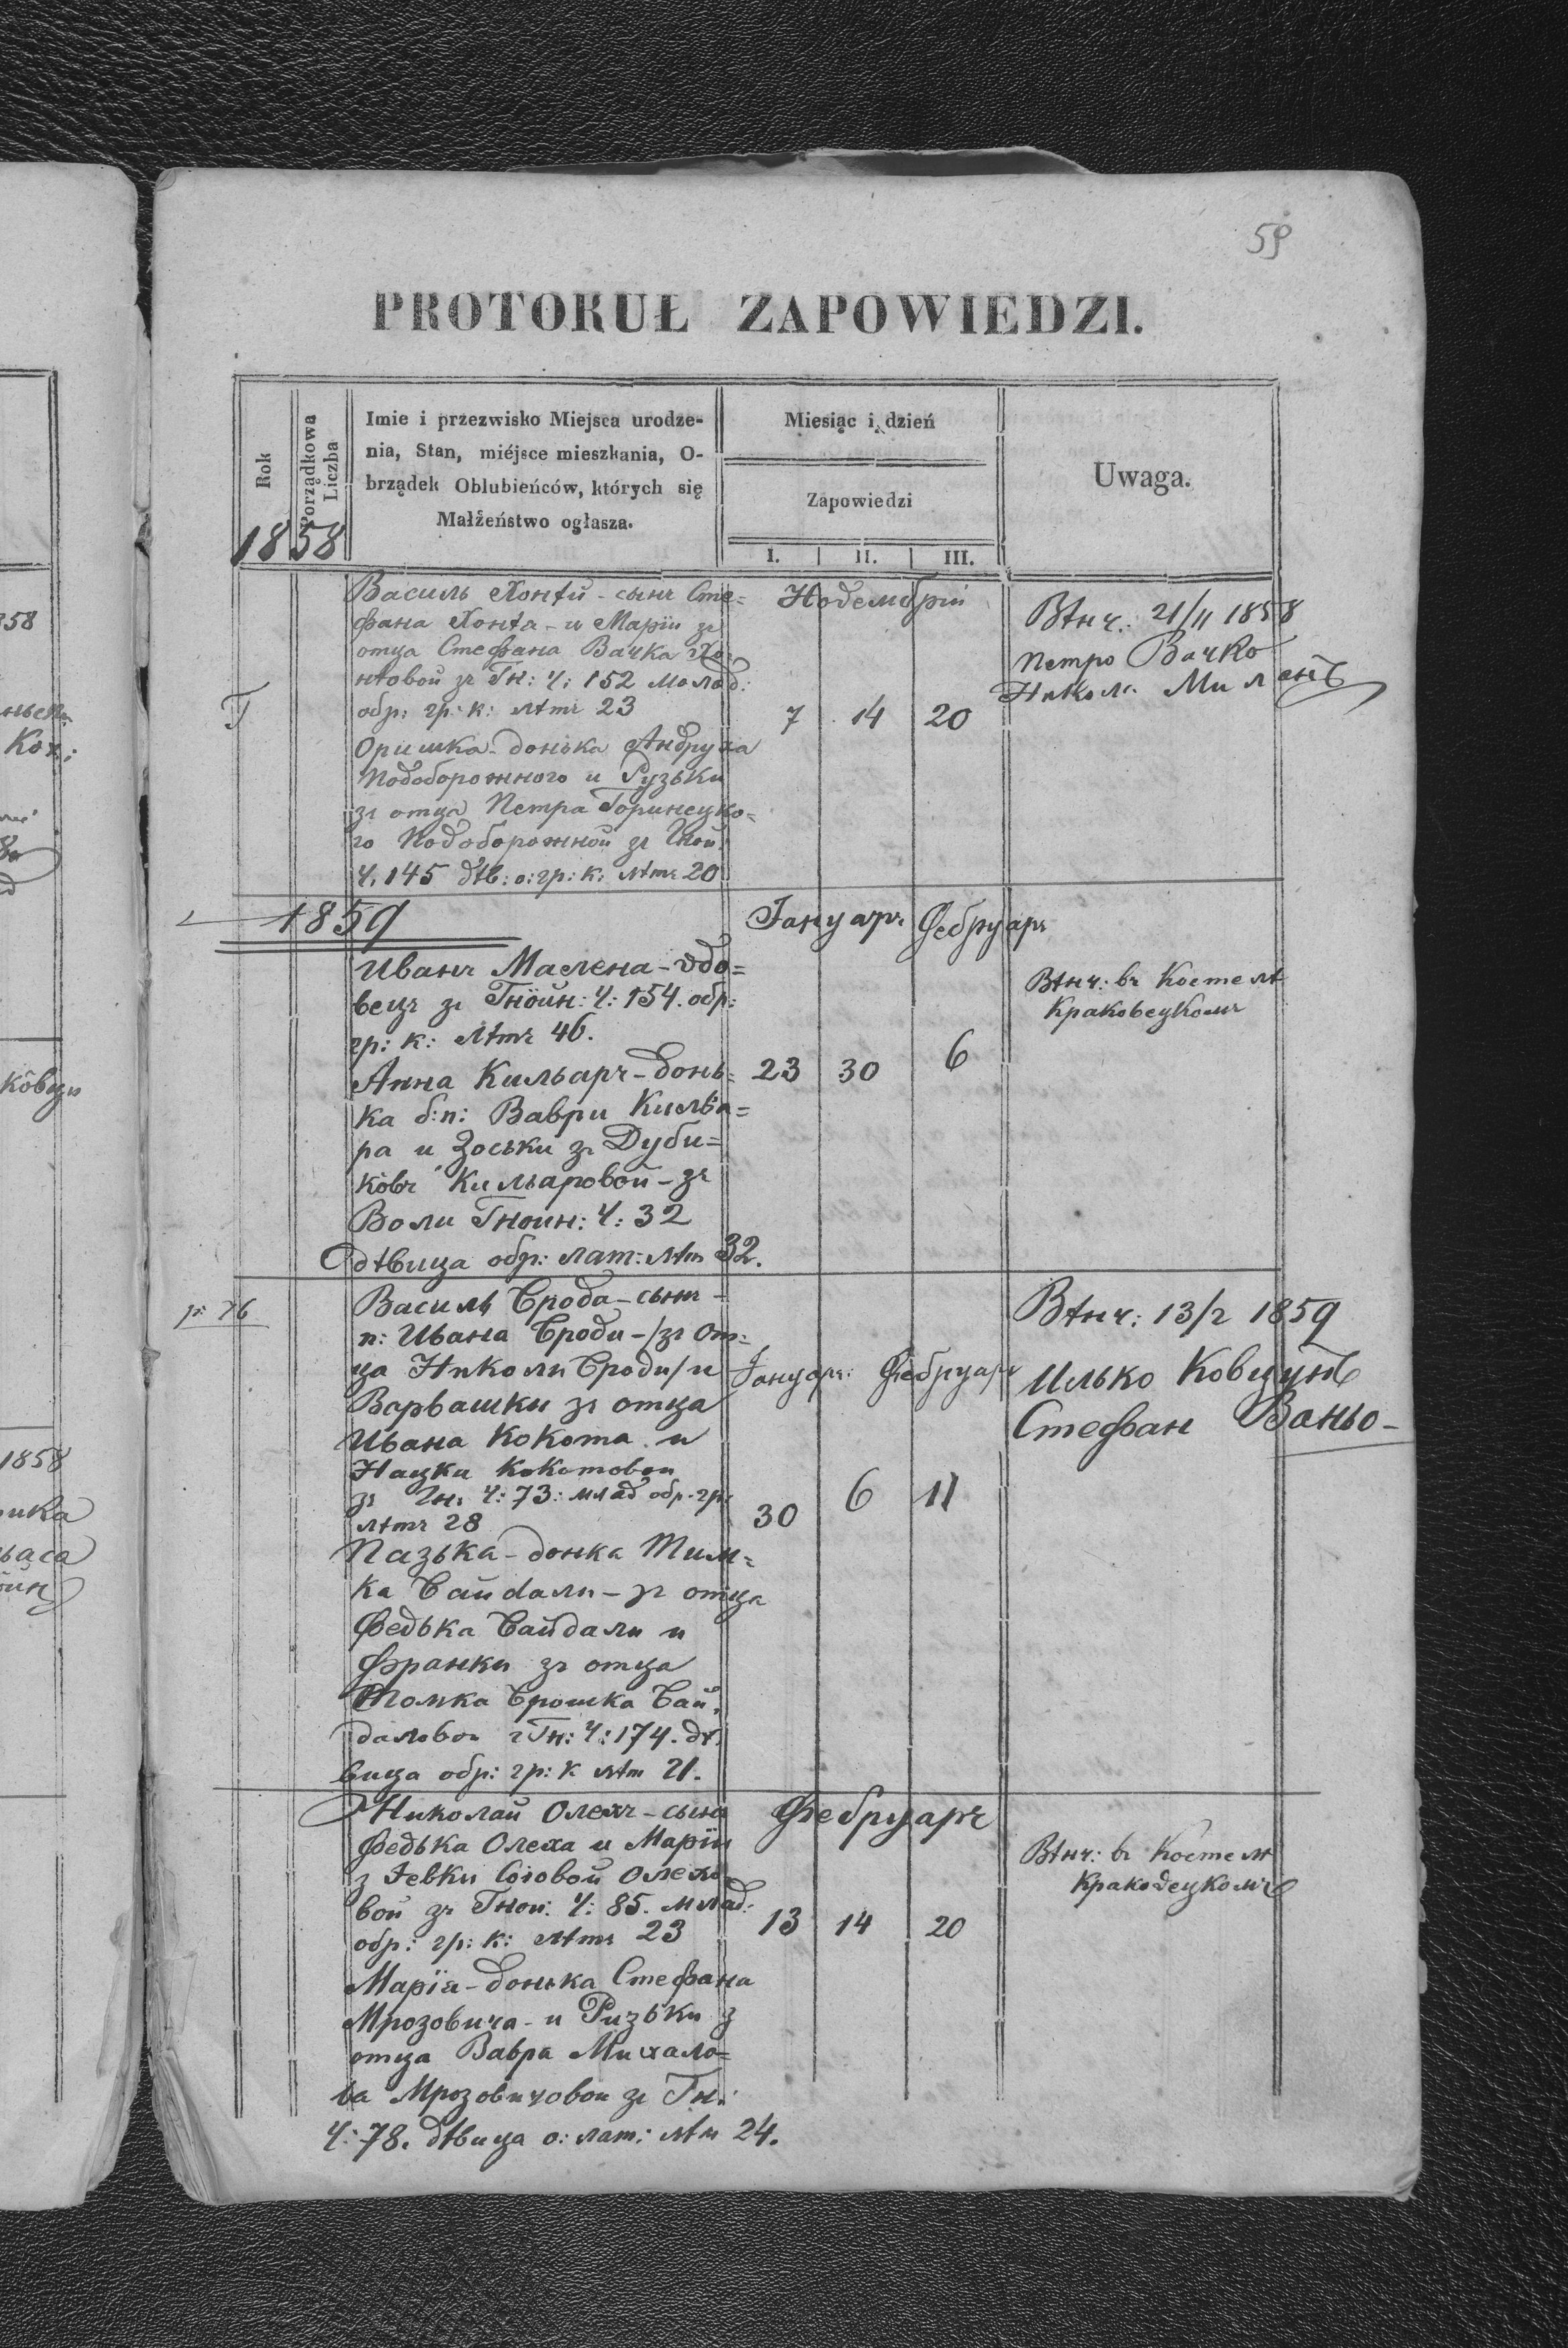 59
PROTOKUŁ ZAPOWIEDZI.
Rok
Porządkowa Liczba
Imie i przezwisko Miejsca urodze-
nia, Stan, miéjsce mieszkania, O-
brządek Oblubieńców, których się
Małżeństwo ogłasza.
Miesiąc i dzień
Zapowiedzi
I. II. III.
Uwaga.
1858
Василь Хонтѣй - сынъ Сте=
фана Хонтѣя - и Маріи зъ
отца Стефана Вачка Хо=
нтѣовой зъ Гн: Ч: 152 молод:
обр: гр: к: лѣтъ 23
Оришка - донька Андруха
Подоборожного и Рузьки
зъ отца Петра Горинецко=
го Подоборожной зъ Гной:
Ч: 145 дѣв: о: гр: к: лѣтъ 20
Новемврій
7 14 20
Вѣнч: 21/11 1858
Петро Вачко
Никол. Милянъ
1859
Иванъ Маслена - вдо=
вецъ зъ Гнойн: Ч: 154. обр:
гр: к: лѣтъ 46.
Анна Кильаръ - донь=
ка б: п: Ваври Кильа=
ра и Зоськи зъ Дуби=
ковъ Кильаровой - зъ
Воли Гноин: Ч: 32
дѣвица обр: лат: лѣт 32.
Януаръ Фебруаръ
23 30 6
Вѣнч: въ Костелѣ
Краковецкомъ
р: 76
Василь Брода - сынъ -
п: Ивана Броди - /зъ от=
ца Николи Броди/ и
Варвашки зъ отца
Ивана Кокота и
Нацки Кокотовои
зъ Гн. Ч: 73: млад обр. гр:
лѣтъ 28
Пазька - донка Тим=
ка Байдали - зъ отца
Федька Байдали и
Франки зъ отца
Томка Брошка Бай=
даловои з Гн: Ч: 174. дѣ
вица обр: гр: к лѣт 21.
Януар: Фебруаръ
30 6 11
Вѣнч: 13/2 1859
Илько Ковцунъ
Стефан Ваньо -
Николай Олехъ - сынъ
Федька Олеха и Маріи
з Іевки Союовой Олехо
вой зъ Гной: Ч: 85. млад:
обр: гр: к: лѣтъ 23
Марія - донька Стефана
Мрозовича - и Рузьки з
отца Вавра Михало=
ва Мрозовичовои зъ Гн:
Ч: 78. дѣвица о: лат: лѣт 24.
Фебруаръ
13 14 20
Вѣнч: въ Костелѣ
Краковецкомъ